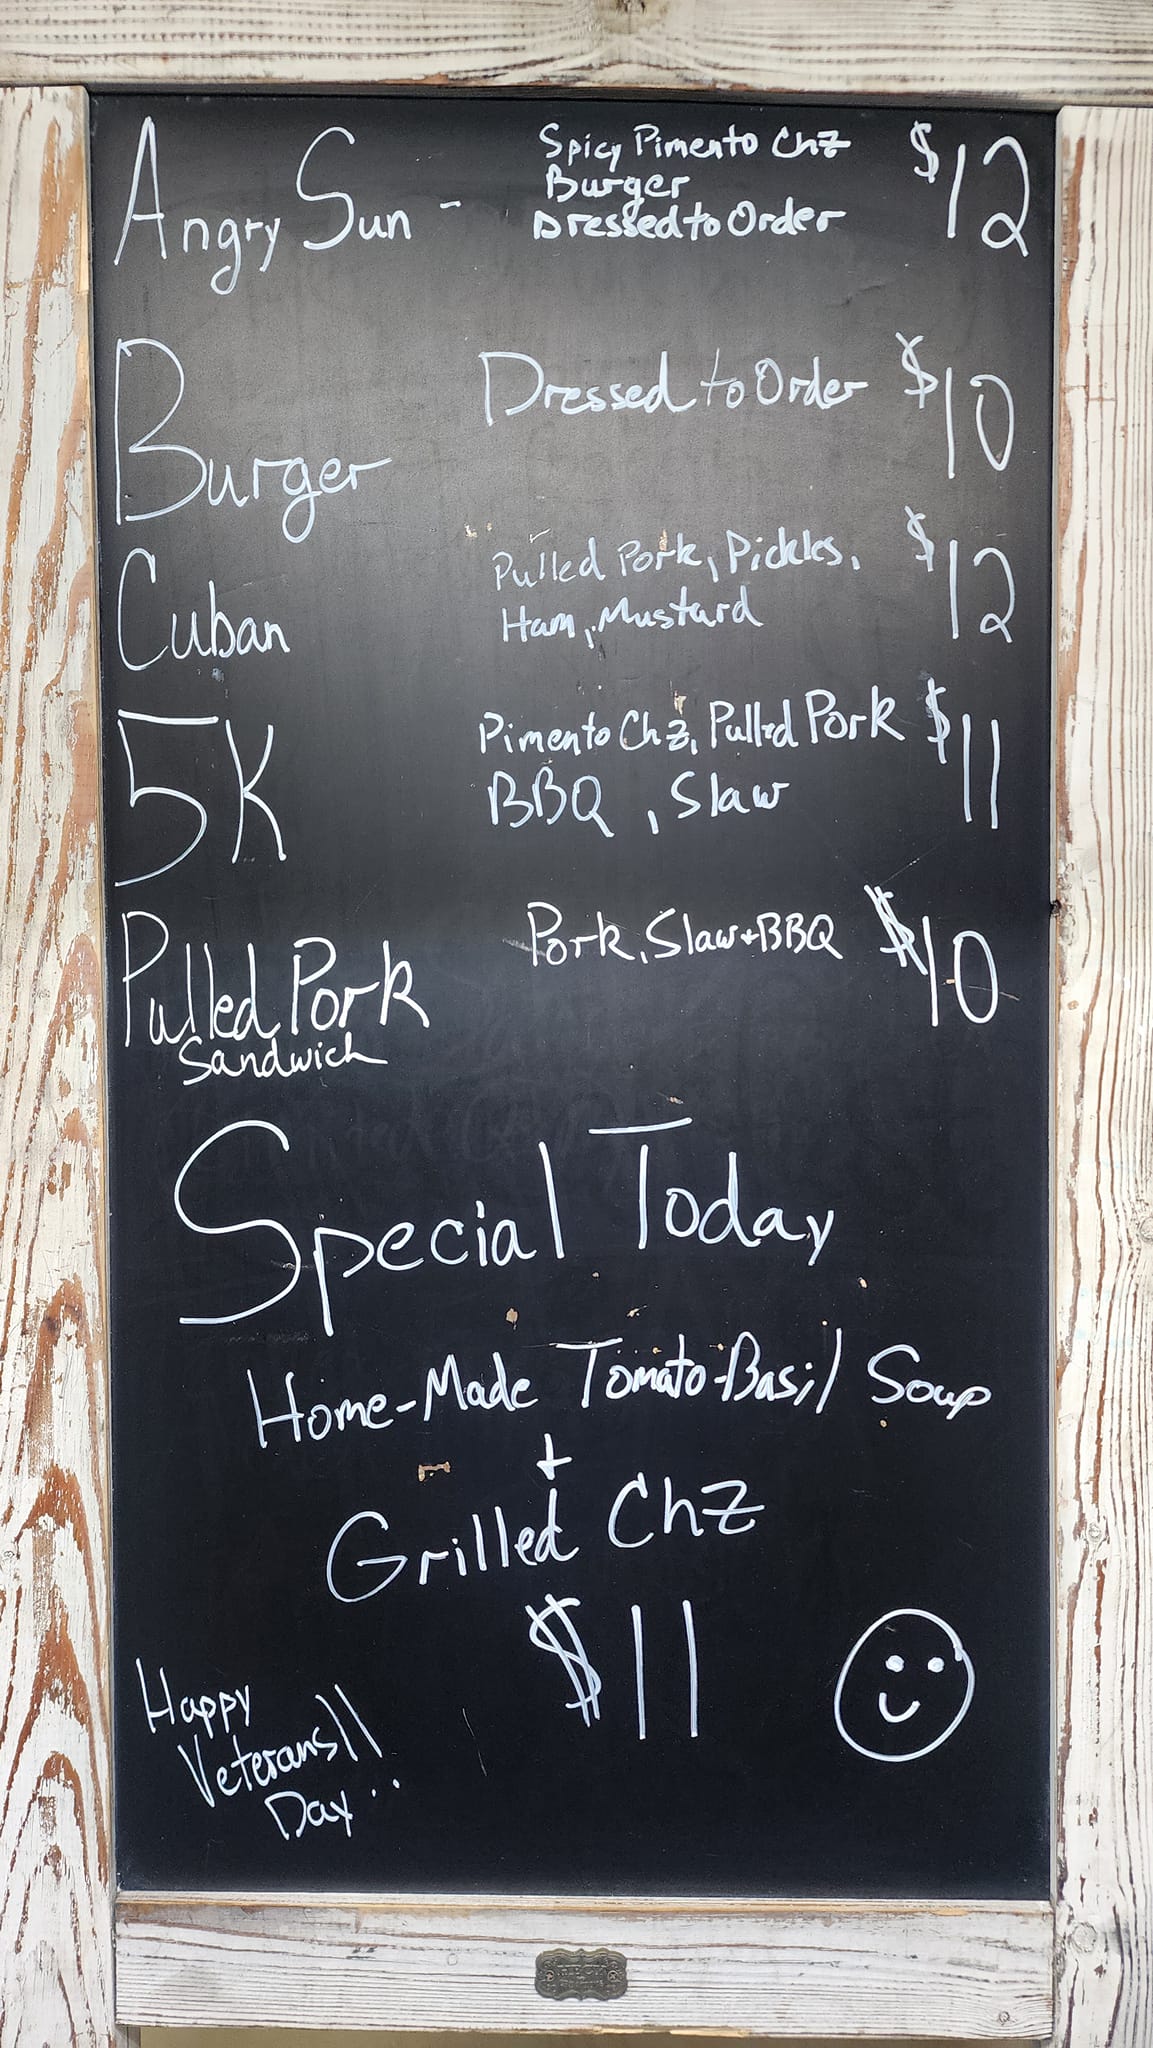 Angry Sun - Spicy Pimento Chz $12
Burger
Dressed to Order
Burger Dressed to Order $10
Cuban Pulled Pork, Pickles, $12
Ham, Mustard
5K Pimento Chz, Pulled Pork $11
BBQ, Slaw
Pulled Pork Pork, Slaw + BBQ $10
Sandwich
Special Today
Home-Made Tomato-Basil Soup
+
Grilled Chz
$11
Happy
Veterans
Day!!